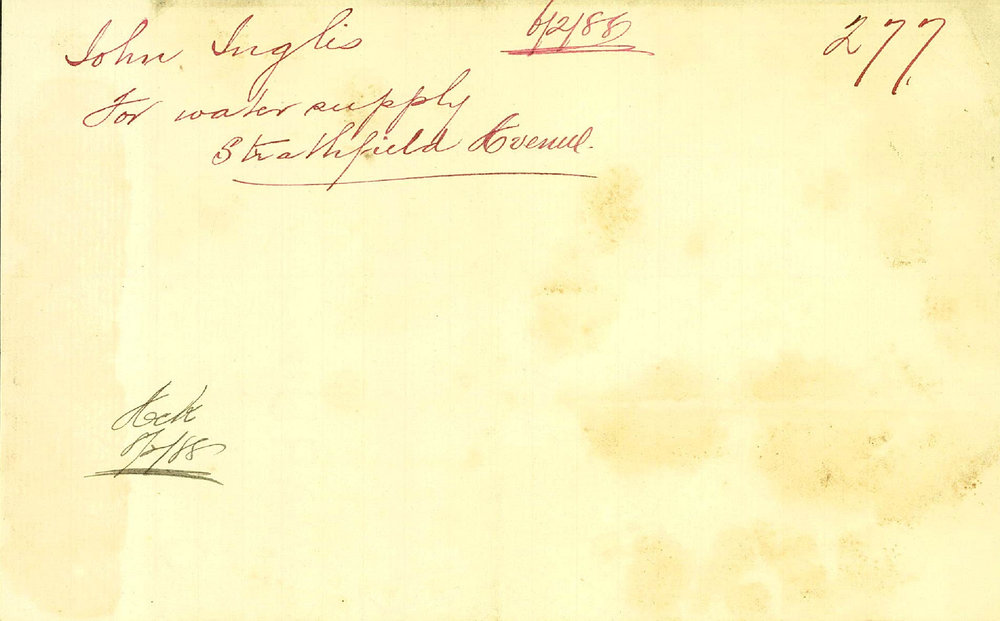 John Inglis 6/2/88 277.
For water supply
Strathfield Avenue.
Ack
8/2/88